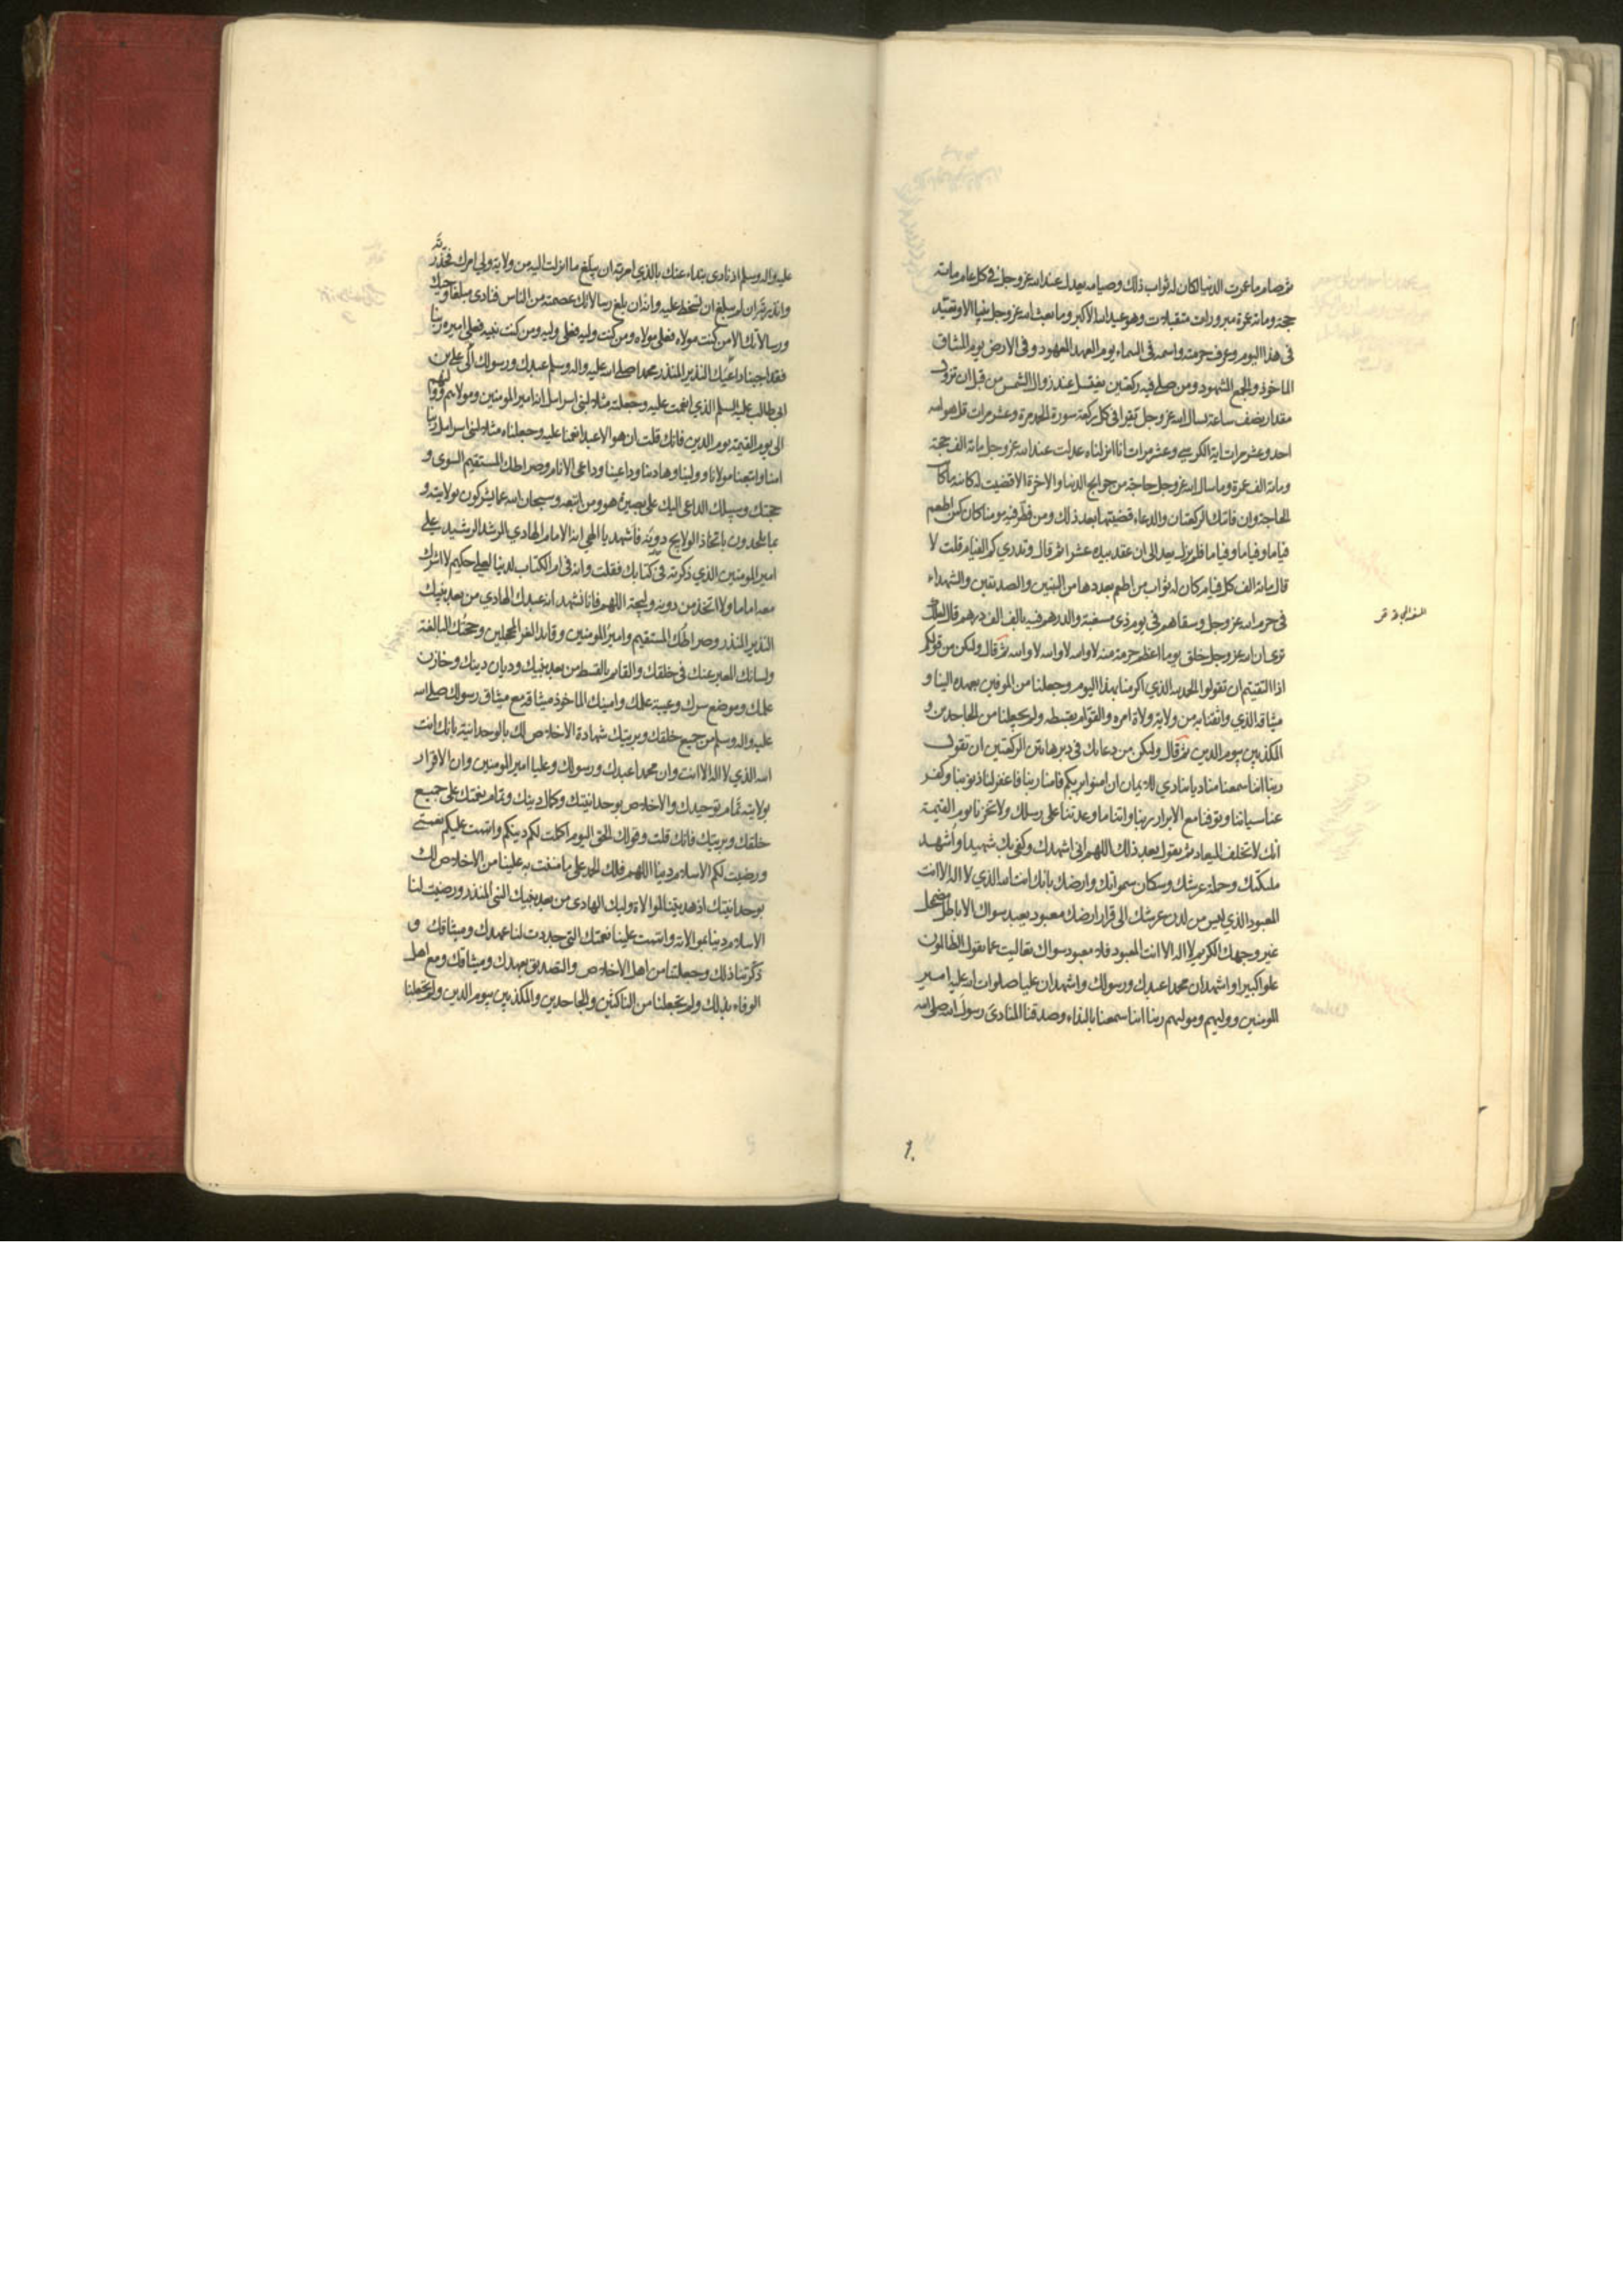 ثم صام ما عمرت الدنيا لكان له ثواب ذلك وصيامه يعدل عند الله عز وجل في كل عام مائة
حجة ومائة عمرة مبرورات متقبلات وهو عيد الله الاكبر وما بعث الله عز وجل نبيا الا وتعيد
في هذا اليوم وعرف حرمته واسمه في السماء يوم العهد المعهود وفي الارض يوم الميثاق
الماخوذ والجمع المشهود ومن صلى فيه ركعتين يغتسل عند زوال الشمس من قبل ان تزول
مقدار نصف ساعة يسال الله عز وجل يقرا في كل ركعة سورة الحمد مرة وعشر مرات قل هو الله
احد وعشر مرات اية الكرسي وعشر مرات انا انزلناه عدلت عند الله عز وجل مائة الف حجة
ومائة الف عمرة وما سال الله عز وجل حاجة من حوايج الدنيا والاخرة الا قضيت له كائنة ما كانت
الحاجة وان فاتتك الركعتان والدعاء قضيتها بعد ذلك ومن فطر فيه مومنا كان كمن اطعم
فياما وفياما وفياما فلم يزل يعد الى ان عقد بيده عشرا ثم قال وتدري كم الفيام قلت لا
قال مائة الف كل فيام كان له ثواب من اطعم بعددها من النبيين والصديقين والشهداء
في حرم الله عز وجل وسقاهم في يوم ذي مسغبة والدرهم فيه بالف الف درهم قال لعلك
ترى ان الله عز وجل خلق يوما اعظم حرمة منه لا والله لا والله لا والله ثم قال وليكن من قولكم
اذا التقيتم ان تقولوا الحمد لله الذي اكرمنا بهذا اليوم وجعلنا من الموفين بعهده الينا و
ميثاقه الذي واثقنا به من ولاية ولاة امره والقوام بقسطه ولم يجعلنا من الجاحدين و
المكذبين بيوم الدين ثم قال وليكن من دعائك في دبر هاتين الركعتين ان تقول
ربنا اننا سمعنا مناديا ينادي للايمان ان امنوا بربكم فامنا ربنا فاغفر لنا ذنوبنا وكفر
عنا سياتنا وتوفنا مع الابرار ربنا واتنا ما وعدتنا على رسلك ولا تخزنا يوم القيمة
انك لا تخلف الميعاد ثم يقول بعد ذلك اللهم اني اشهدك وكفى بك شهيدا واشهد
ملئكتك وحملة عرشك وسكان سمواتك وارضك بانك انت الله الذي لا اله الا انت
المعبود الذي ليس من لدن عرشك الى قرار ارضك معبود يعبد سواك الا باطل مضمحل
غير وجهك الكريم لا اله الا انت المعبود فلا معبود سواك تعاليت عما يقول الظالمون
علوا كبيرا واشهد ان محمدا عبدك ورسولك واشهد ان عليا صلوات الله عليه امير
المومنين ووليهم ومولهم ربنا اننا سمعنا بالنداء وصدقنا المنادي رسول الله صلى الله
عليه واله وسلم اذ نادى بنداء عنك بالذي امرته ان يبلغ ما انزلت اليه من ولاية ولي امرك فحذرته
وانذرته ان لم يبلغ ان تسخط عليه وانه ان بلغ رسالاتك عصمته من الناس فنادى مبلغا وحيك
ورسالاتك الا من كنت مولاه فعلي مولاه ومن كنت وليه فعلي وليه ومن كنت نبيه فعلي اميره ربنا
فقد اجبنا داعيك النذير المنذر محمدا صلى الله عليه واله وسلم عبدك ورسولك الى علي بن
ابي طالب عليه السلم الذي انعمت عليه وجعلته مثلا لبني اسرائيل انه امير المومنين ومولاهم ووليهم
الى يوم القيمة يوم الدين فانك قلت ان هو الا عبد انعمنا عليه وجعلناه مثلا لبني اسرائيل ربنا
امنا واتبعنا مولانا وولينا وهادينا وداعينا وداعي الانام وصراطك المستقيم السوي و
حجتك وسبيلك الداعي اليك على بصيرة هو ومن اتبعه وسبحان الله عما يشركون بولايته و
بما يلحدون باتخاذ الولايج دونه فاشهد يا الهي انه الامام الهادي المرشد الرشيد علي
امير المومنين الذي ذكرته في كتابك فقلت وانه في ام الكتاب لدينا لعلي حكيم لا اشرك
معه اماما ولا اتخذ من دونه وليجة اللهم فانا نشهد انه عبدك الهادي من بعد نبيك
النذير المنذر وصراطك المستقيم وامير المومنين وقائد الغر المحجلين وحجتك البالغة
ولسانك المعبر عنك في خلقك والقائم بالقسط من بعد نبيك وديان دينك وخازن
علمك وموضع سرك وعيبة علمك وامينك الماخوذ ميثاقه مع ميثاق رسولك صلى الله
عليه واله وسلم من جميع خلقك وبريتك شهادة الاخلاص لك بالوحدانية بانك انت
الله الذي لا اله الا انت وان محمدا عبدك ورسولك وعليا امير المومنين وان الاقرار
بولايته تمام توحيدك والاخلاص بوحدانيتك وكمال دينك وتمام نعمتك على جميع
خلقك وبريتك فانك قلت وقولك الحق اليوم اكملت لكم دينكم واتممت عليكم نعمتي
ورضيت لكم الاسلام دينا اللهم فلك الحمد على ما مننت به علينا من الاخلاص لك
بوحدانيتك اذ هديتنا لموالاة وليك الهادي من بعد نبيك النبي المنذر ورضيت لنا
الاسلام دينا بموالاته واتممت علينا نعمتك التي جددت لنا عهدك وميثاقك و
ذكرتنا ذلك وجعلتنا من اهل الاخلاص والتصديق بعهدك وميثاقك ومع اهل
الوفاء بذلك ولم تجعلنا من الناكثين والجاحدين والمكذبين بيوم الدين ولم تجعلنا